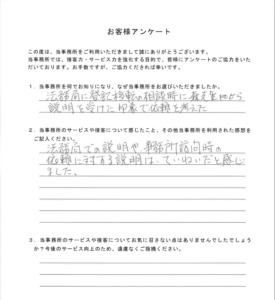 お客様アンケート
この度は、当事務所をご利用いただきまして誠にありがとうございます。
当事務所では、接客力・サービス力を強化する目的で、皆様にアンケートのご協力をいた
だいております。お手数ですが、ご協力くだされば幸いです。
1．当事務所を何でお知りになり、なぜ当事務所をお選びいただきましたか。
法務局に登記移転の相談時に
説明を受けた印象で依頼を考えた
2．当事務所のサービスや接客について感じたこと、その他当事務所を利用された感想を
ご記入ください。
法務局での説明や事務所訪問時の
依頼に対する説明は、ていねいだと感じ
ました。
3．当事務所のサービスや接客についてお気に召さない点はありませんでしたでしょう
か？今後のサービス向上のため、遠慮なくご指摘ください。